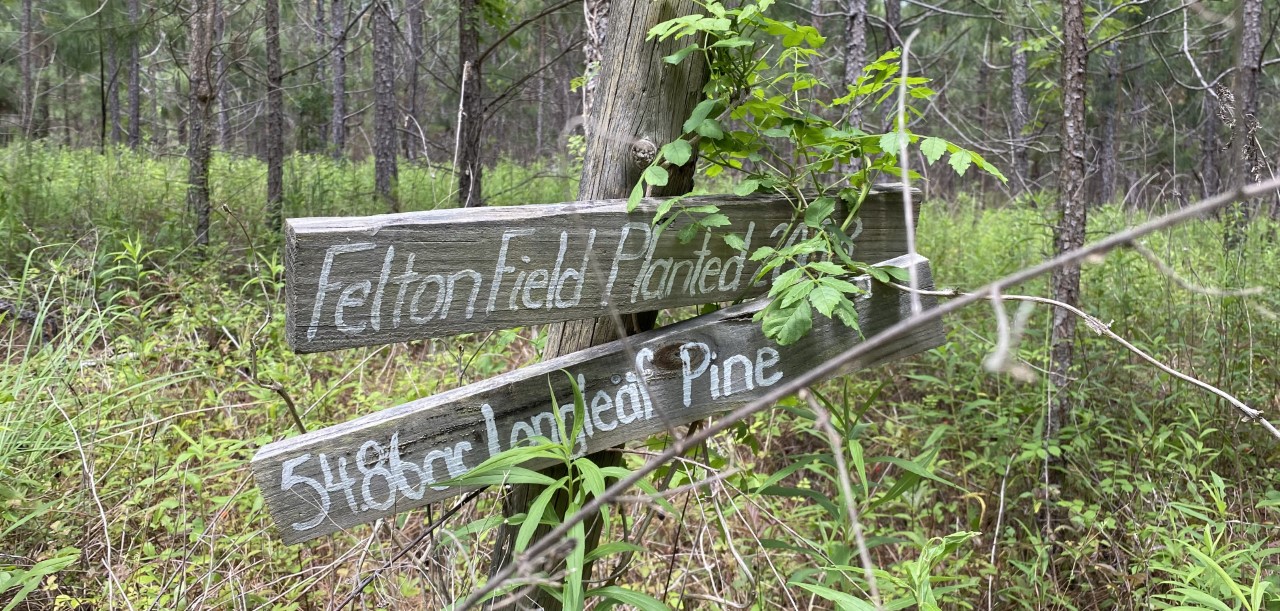 Felton Field Planted
Longleaf Pine